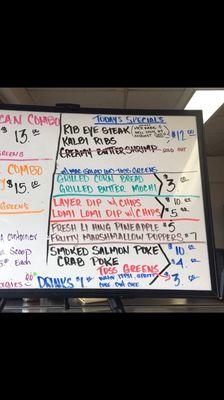 CAN COMBO
$13.00
GREENS
COMBO
$15.00
GREENS
a container
Scoop
5¢ Each
TODAYS SPECIALS
RIB EYE STEAK
KALBI RIBS
$12.00
CREAMY BUTTER SHRIMP SOLD OUT
TOSS GREENS
GRILLED CORN BREAD
GRILLED BUTTER MOCHI
$3.00
LAYER DIP w/ CHIPS $10.00
LOMI LOMI DIP w/ CHIPS $5.00
FRESH LI HING PINEAPPLE $5
FRUITY MARSHMALLOW POPPERS $7
SMOKED SALMON POKE $10.00
CRAB POKE $4.00
TOSS GREENS
$3.00
DRINKS $1.00